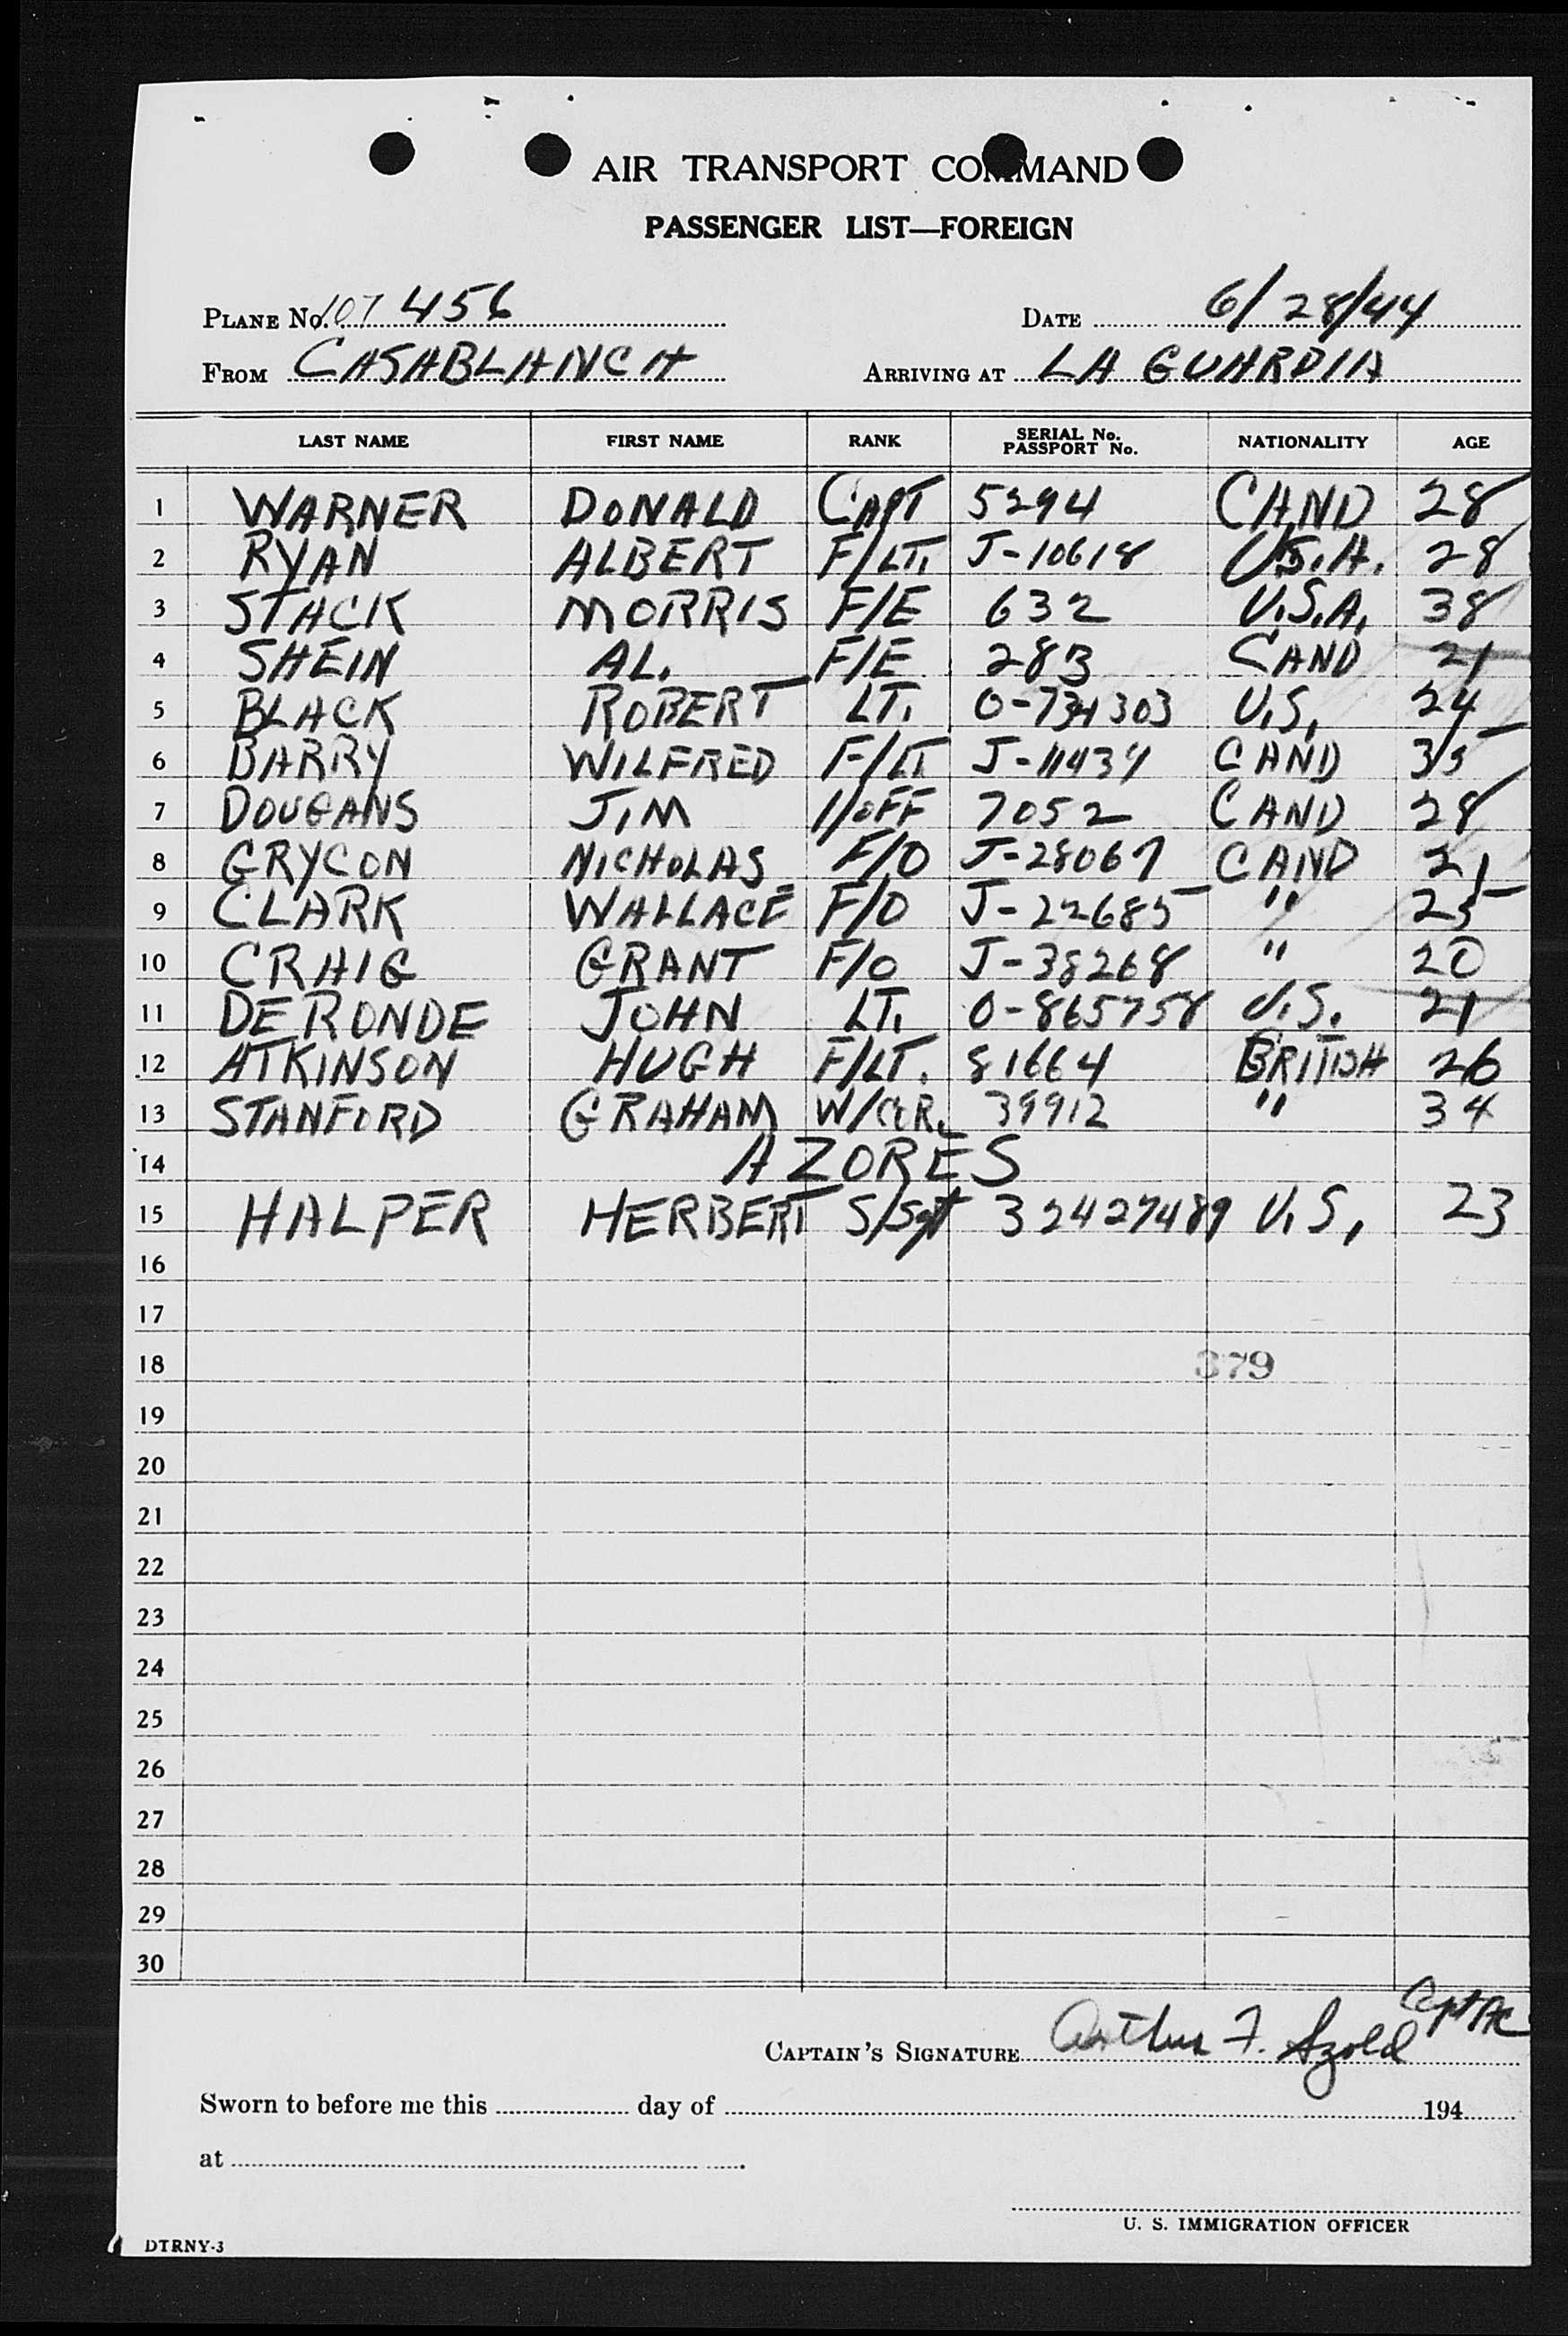 AIR TRANSPORT COMMAND
PASSENGER LIST—FOREIGN
PLANE No. 107 456 DATE 6/28/44
FROM CASABLANCA ARRIVING AT LA GUARDIA
LAST NAME FIRST NAME RANK SERIAL No. PASSPORT No. NATIONALITY AGE
1 WARNER DONALD CAPT 5294 CAND 28
2 RYAN ALBERT F/LT. J-10618 U.S.A. 28
3 STACK MORRIS F/E 632 U.S.A. 38
4 SHEIN AL. F/E 283 CAND 21
5 BLACK ROBERT LT. O-734303 U.S. 24
6 BARRY WILFRED F/LT J-11437 CAND 35
7 DOUGANS JIM 1/OFF 7052 CAND 28
8 GRYCON NICHOLAS F/O J-28067 CAND 21
9 CLARK WALLACE F/O J-22685 " 25
10 CRAIG GRANT F/O J-38268 " 20
11 DERONDE JOHN LT. O-865758 U.S. 21
12 ATKINSON HUGH F/LT. 81664 BRITISH 26
13 STANFORD GRAHAM 39912 " 34
14 AZORES
15 HALPER HERBERT S/Sgt 32427489 U.S. 23
16
17
18 379
19
20
21
22
23
24
25
26
27
28
29
30
CAPTAIN'S SIGNATURE Arthur F. Szold Capt AC
Sworn to before me this day of 194
at
U. S. IMMIGRATION OFFICER
DTRNY-3